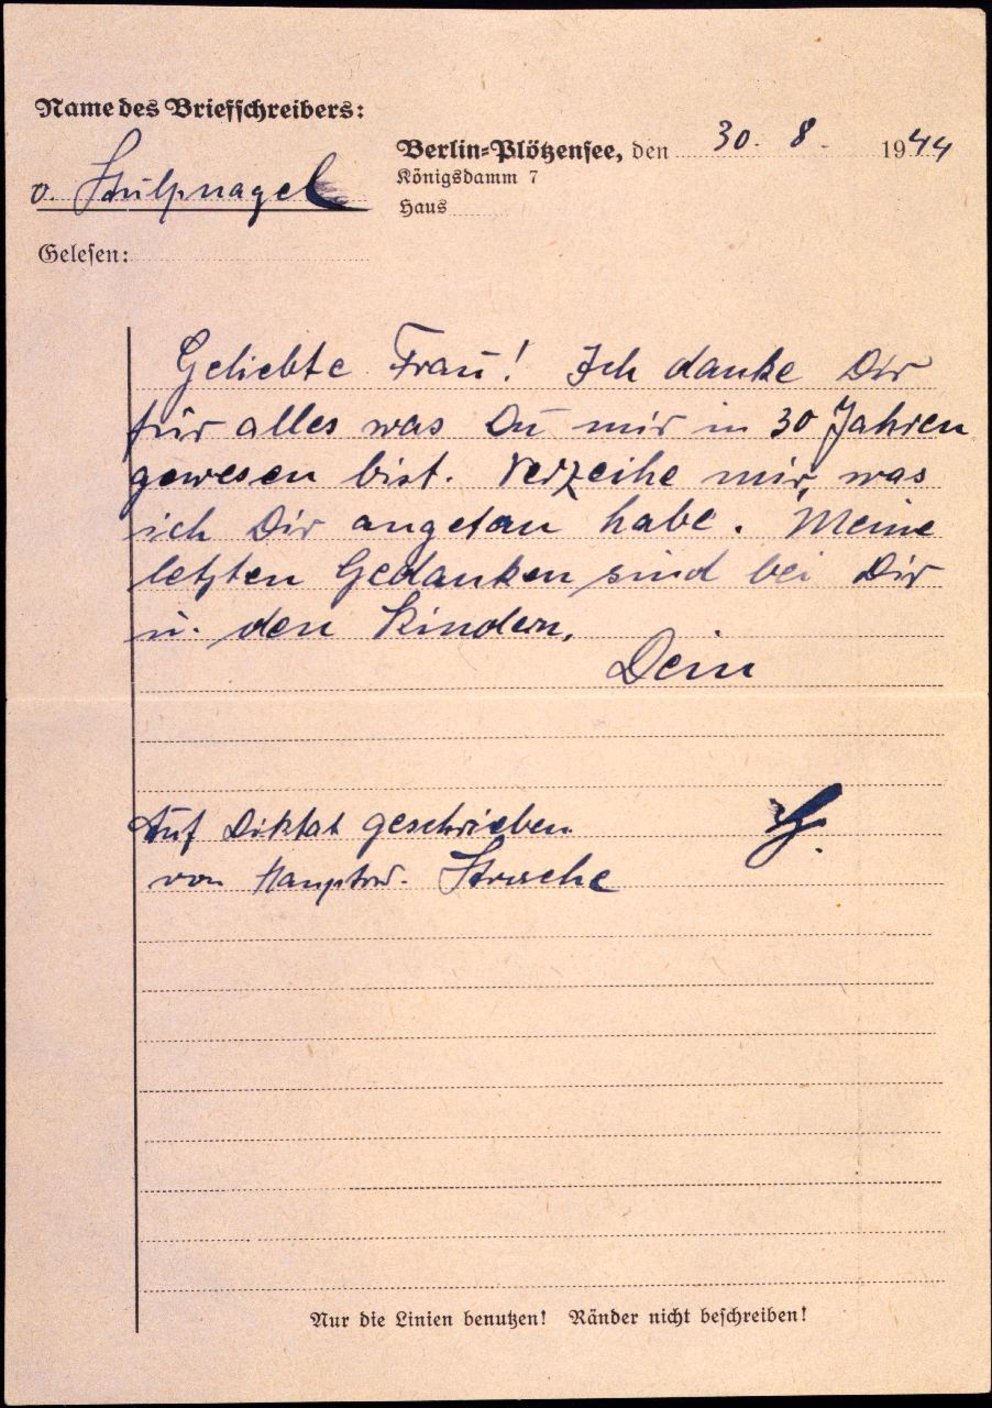 Name des Briefschreibers:
v. Stülpnagel
Berlin-Plötzensee, den 30. 8. 1944
Königsdamm 7
Haus
Gelesen:
Geliebte Frau! Ich danke Dir
für alles was Du mir in 30 Jahren
gewesen bist. Verzeihe mir, was
ich Dir angetan habe. Meine
letzten Gedanken sind bei Dir
u. den Kindern.
Dein
Auf Diktat geschrieben
von Hauptw. Strache
Nur die Linien benutzen! Ränder nicht beschreiben!